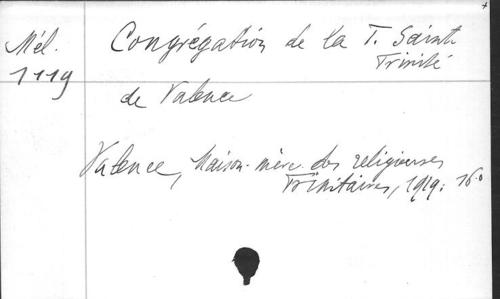 Mél.
1119
Congrégation de la T. Sainte
Trinité
de Valence
Valence, Maison-mère des religieuses
Trinitaires, 1919; 16°